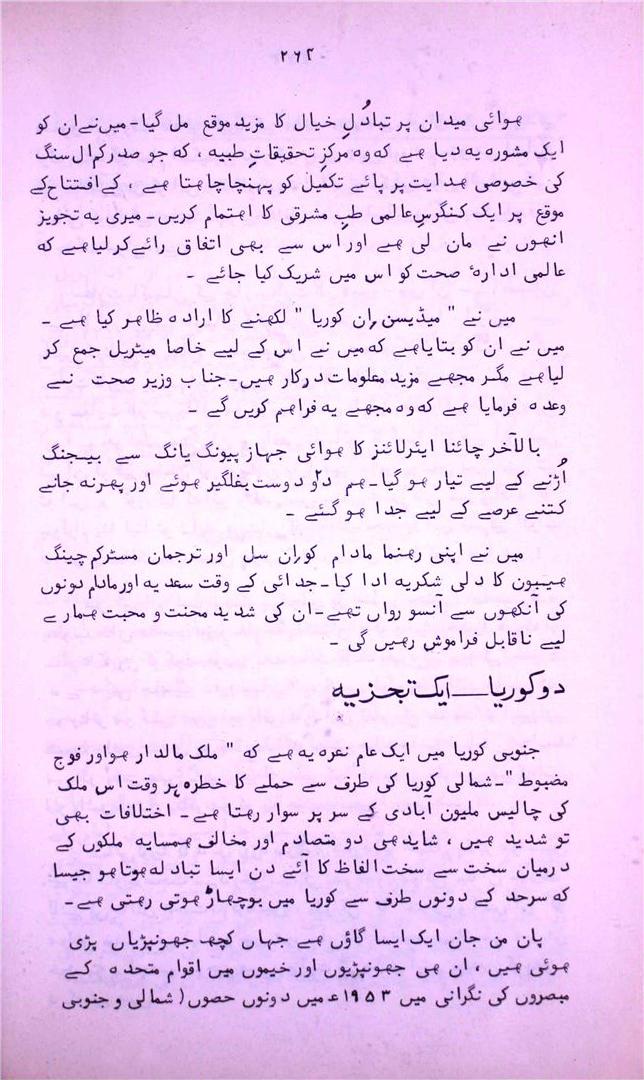 ۲۶۲
ہوائی میدان پر تبادُلِ خیال کا مزید موقع مل گیا۔ میں نے ان کو
ایک مشورہ یہ دیا ہے کہ وہ مرکزِ تحقیقاتِ طبیہ ، کہ جو صدر کم ال سنگ
کی خصوصی ہدایت پر پائے تکمیل کو پہنچا چاہتا ہے ، کے افتتاح کے
موقع پر ایک کنگرس عالمی طبِ مشرقی کا اہتمام کریں۔ میری یہ تجویز
انھوں نے مان لی ہے اور اس سے بھی اتفاق رائے کر لیا ہے کہ
عالمی ادارۂ صحت کو اس میں شریک کیا جائے ۔
میں نے " میڈیسن اِن کوریا " لکھنے کا ارادہ ظاہر کیا ہے ۔
میں نے ان کو بتایا ہے کہ میں نے اس کے لیے خاصا میٹریل جمع کر
لیا ہے مگر مجھے مزید معلومات درکار ہیں۔ جناب وزیر صحت نے
وعدہ فرمایا ہے کہ وہ مجھے یہ فراہم کریں گے ۔
بالآخر چائنا ایئرلائنز کا ہوائی جہاز پیونگ یانگ سے بیجنگ
اُڑنے کے لیے تیار ہو گیا۔ ہم دو دوست بغلگیر ہوئے اور پھر نہ جانے
کتنے عرصے کے لیے جدا ہو گئے ۔
میں نے اپنی رہنما مادام کوران سل اور ترجمان مسٹر کم چینگ
ہیپون کا دلی شکریہ ادا کیا۔ جدائی کے وقت سعدیہ اور مادام دونوں
کی آنکھوں سے آنسو رواں تھے۔ ان کی شدید محنت و محبت ہمارے
لیے ناقابل فراموش رہیں گی ۔
دو کوریا — ایک تجزیہ
جنوبی کوریا میں ایک عام نعرہ یہ ہے کہ " ملک مالدار ہو اور فوج
مضبوط "۔ شمالی کوریا کی طرف سے حملے کا خطرہ ہر وقت اس ملک
کی چالیس ملیون آبادی کے سر پر سوار رہتا ہے۔ اختلافات بھی
تو شدید ہیں ، شاید ہی دو متصادم اور مخالف ہمسایہ ملکوں کے
درمیان سخت سے سخت الفاظ کا آئے دن ایسا تبادلہ ہوتا ہو جیسا
کہ سرحد کے دونوں طرف سے کوریا میں بوچھاڑ ہوتی رہتی ہے۔
پان من جان ایک ایسا گاؤں ہے جہاں کچھ جھونپڑیاں پڑی
ہوئی ہیں ، ان ہی جھونپڑیوں اور خیموں میں اقوام متحدہ کے
مبصروں کی نگرانی میں ۱۹۵۳ء میں دونوں حصوں ( شمالی و جنوبی